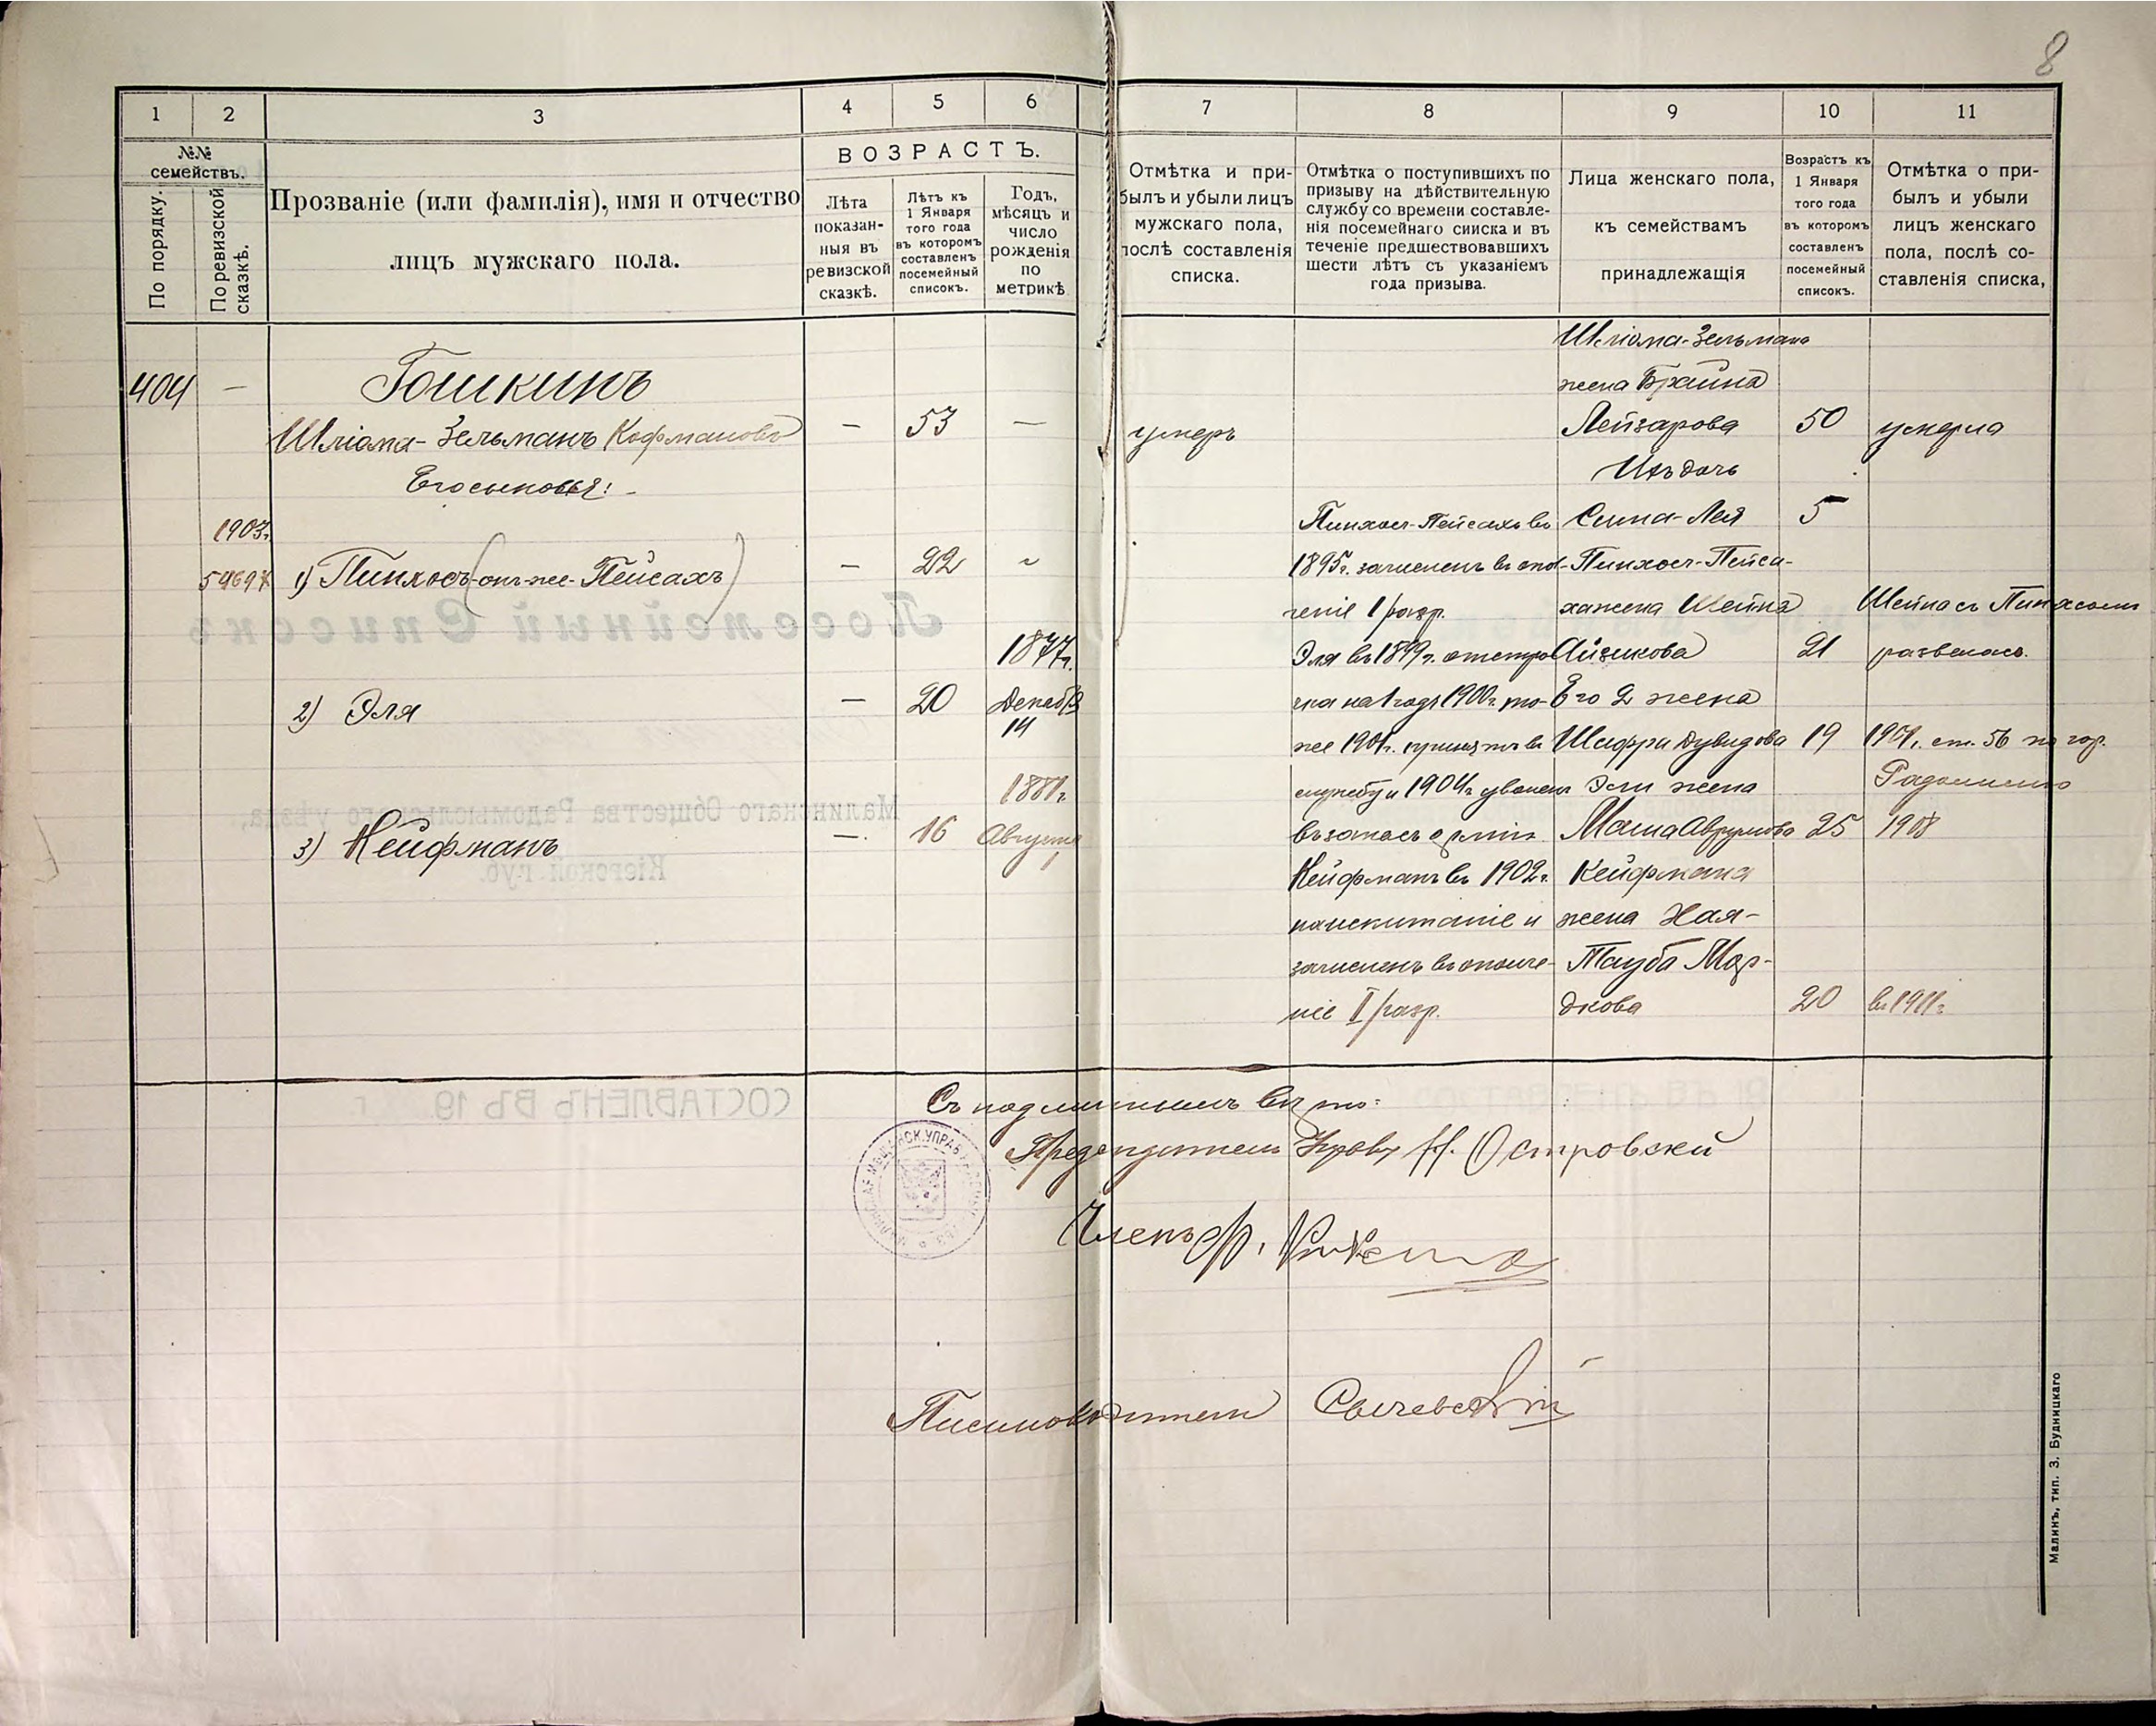 8
1 2 3 4 5 6 7 8 9 10 11
№№ семействъ.
По порядку.
По ревизской сказкѣ.
Прозваніе (или фамилія), имя и отчество
лицъ мужскаго пола.
ВОЗРАСТЪ.
Лѣта
показан-
ныя въ
ревизской
сказкѣ.
Лѣтъ къ
1 Января
того года
въ которомъ
составленъ
посемейный
списокъ.
Годъ,
мѣсяцъ и
число
рожденія
по
метрикѣ
Отмѣтка и при-
былъ и убыли лицъ
мужскаго пола,
послѣ составленія
списка.
Отмѣтка о поступившихъ по
призыву на дѣйствительную
службу со времени составле-
нія посемейнаго списка и въ
теченіе предшествовавшихъ
шести лѣтъ съ указаніемъ
года призыва.
Лица женскаго пола,
къ семействамъ
принадлежащія
Возрастъ къ
1 Января
того года
въ которомъ
составленъ
посемейный
списокъ.
Отмѣтка о при-
былъ и убыли
лицъ женскаго
пола, послѣ со-
ставленія списка,
404 —
Гошкинъ
Шліома-Зельманъ Кофмановъ
— 53 —
Его сыновья:
1903г.
1) Пинхосъ (онъ-же-Пейсахъ)
— 22
2) Эля
— 20
1877г.
Декабр
14
3) Кейфманъ
— 16
1881г.
Августа
1
умеръ
Пинхосъ-Пейсахъ въ
1895г. зачисленъ въ опол-
ченіе I разр.
Эля въ 1899г. отстро
чка на 1 годъ 1900г. то-
же 1901г. принятъ въ
службу и 1904г уволенъ
въ запасъ арміи
Кейфманъ въ 1902г.
на испытаніе и
зачисленъ въ ополче-
ніе II разр.
Шліома-Зельмана
жена Брайна
Лейзарова 50 умерла
Ихъ дочь
Сима-Лея 5
Пинхосъ-Пейса-
ха жена Шейна
Айзикова 21
Шейна съ Пинхосомъ
развелась.
Его 2 жена
Шифра Дувидова 19
ст. 56 по гор.
Радомыслю
Эли жена
Маша Аврумова 25 1908
Кейфмана
жена Хая-
Тауба Мор-
дкова 20 въ 1911г.
Съ подлиннымъ вѣрно:
Предсѣдатель Управы Н. Островскій
Членъ
Писмоводитель
Малинъ, тип. З. Будницкаго